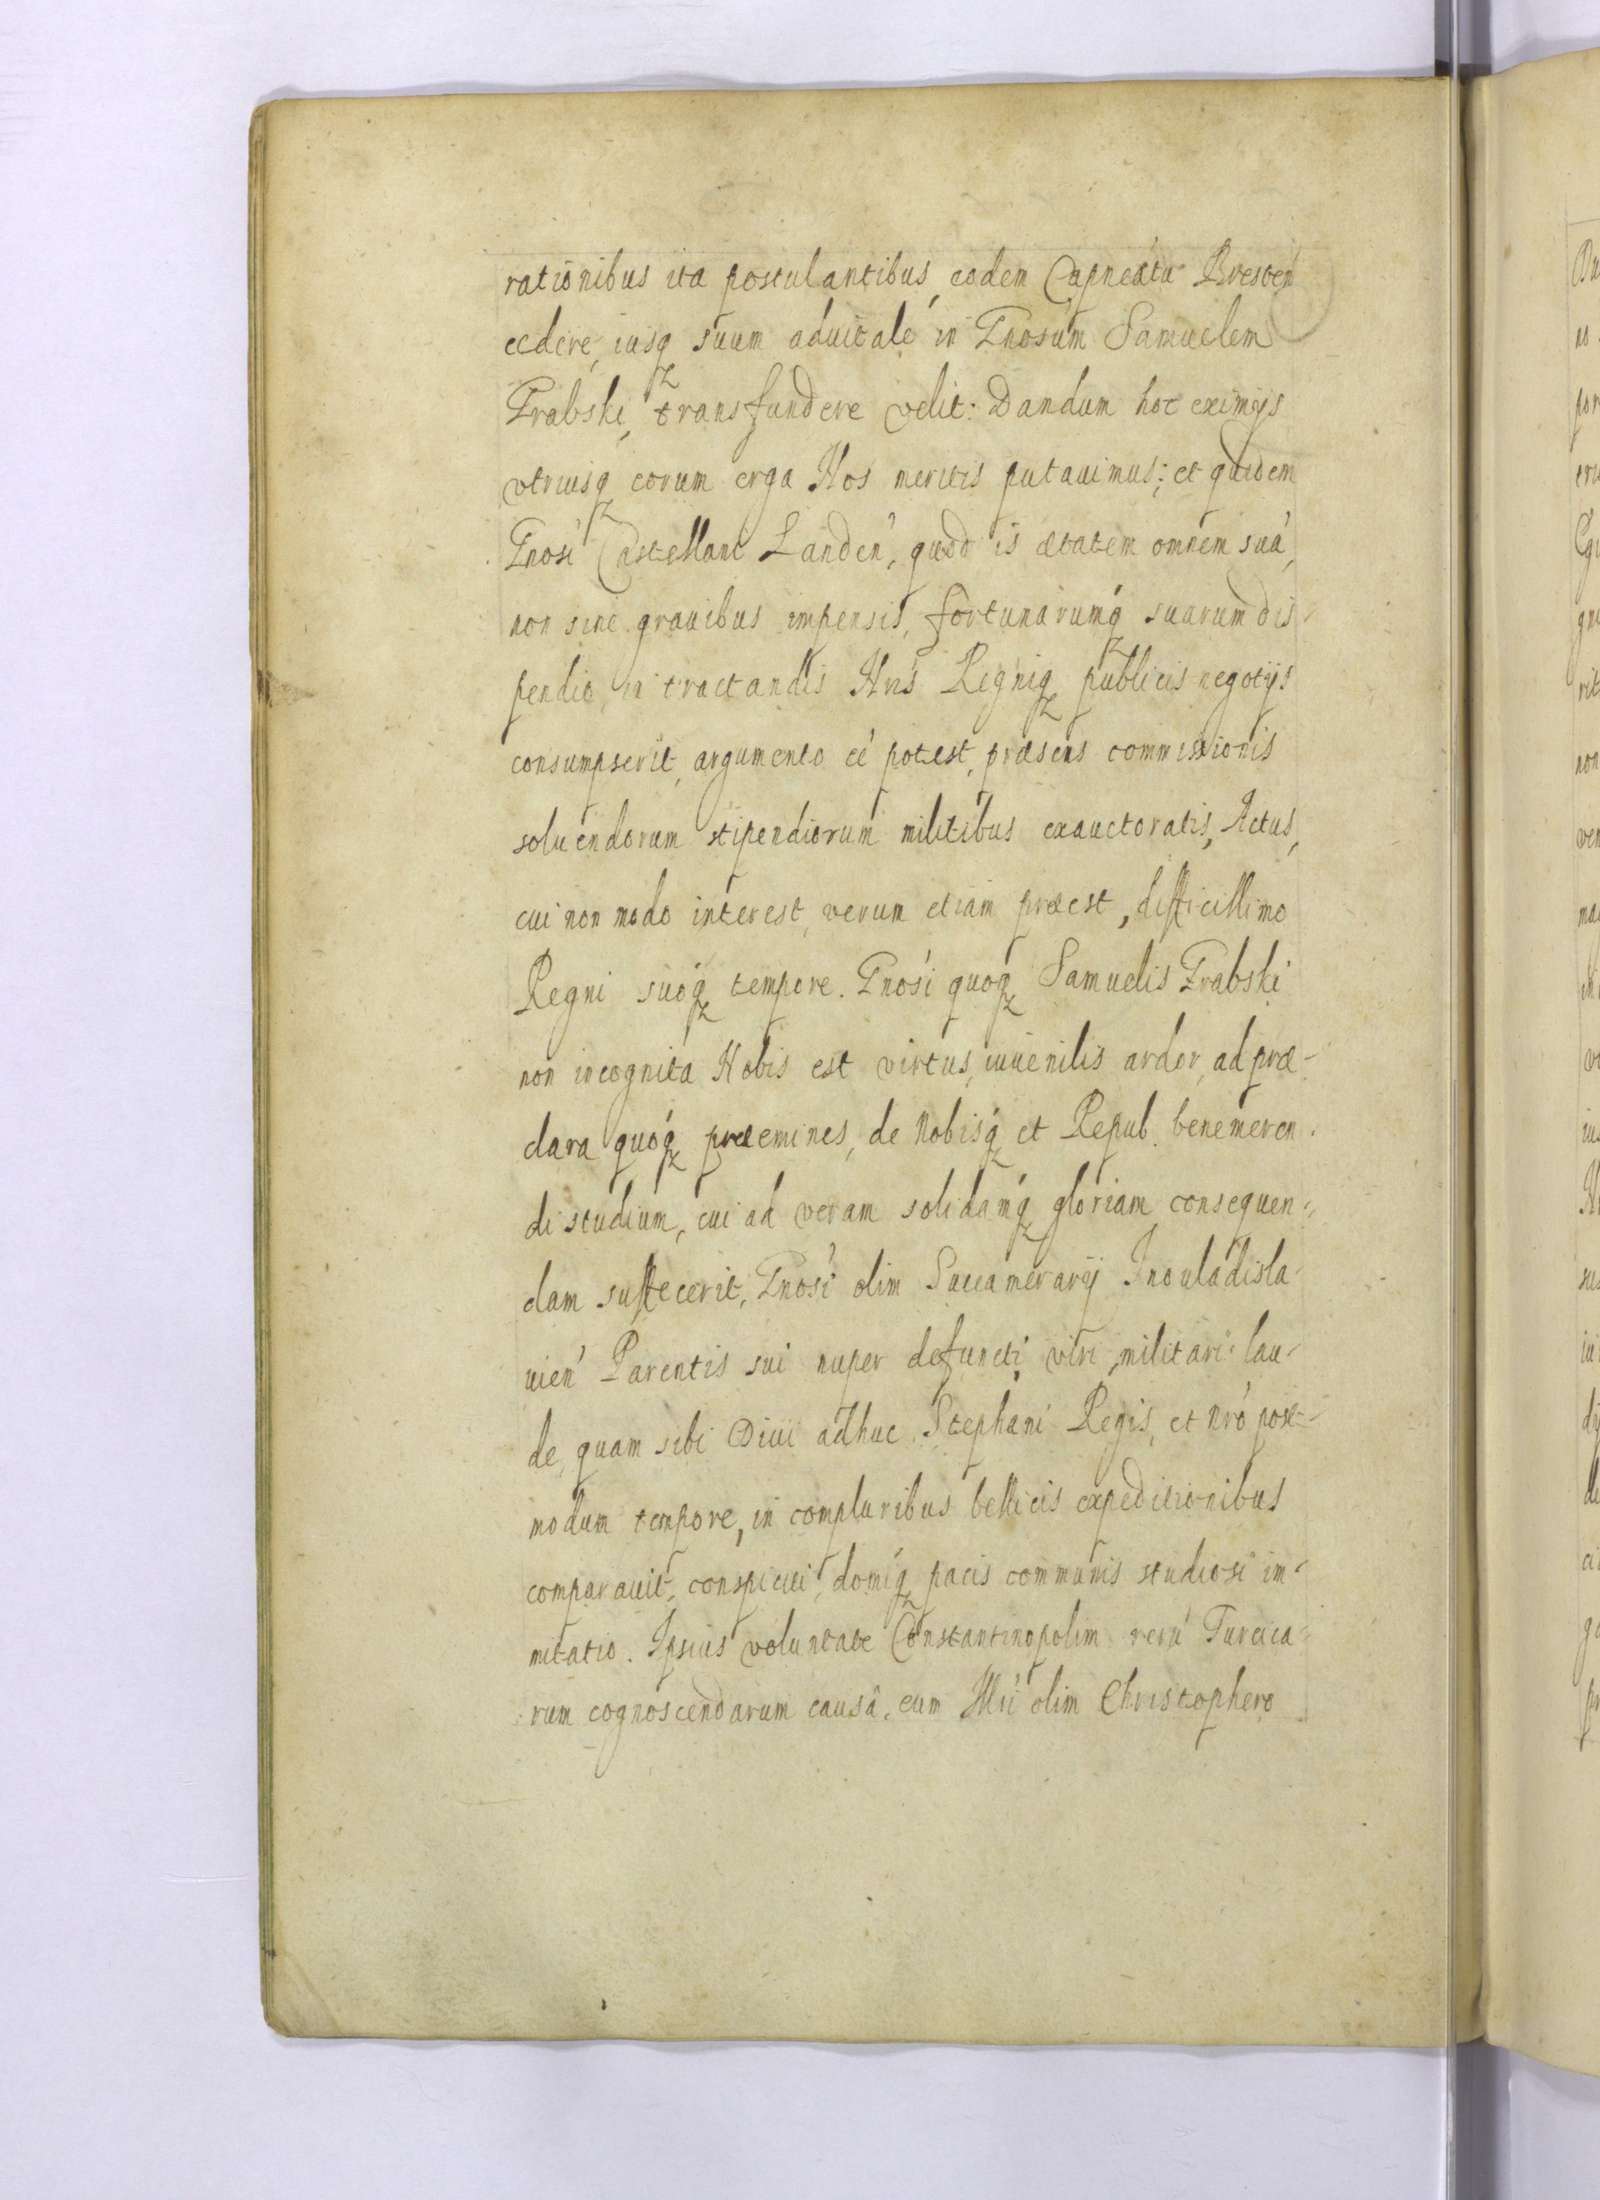 rationibus ita postulantibus, eodem Capneatu Bresten
cedere, iusq suum aduitale in Gnosum Samuelem
Grabski, transfundere velit: Dandum hoc eximijs
vtriusq eorum erga Nos meritis putauimus; et quidem
Gnosi Castellani Landen, quod is ætatem omnem suã,
non sine grauibus impensis, fortunarumq suarum dis-
pendio, in tractandis Nris Regniq publicis negotijs
consumpserit, argumento eẽ potest, præsens commissionis
soluendorum stipendiorum militibus exauctoratis, Actus,
cui non modo interest, verum etiam præest, difficillimo
Regni suoq tempore. Gnosi quoq Samuelis Grabski
non incognita Nobis est virtus, iuuenilis ardor, ad præ-
clara quoq præemines, de Nobisq et Repub. benemeren-
di studium, cui ad veram solidamq gloriam consequen-
dam suffecerit, Gnosi olim Succamerarij Inouladisla-
uien Parentis sui nuper defuncti, viri, militari lau-
de, quam sibi Diui adhuc Stephani Regis, et nro post-
modum tempore, in compluribus bellicis expeditionibus
comparauit, conspicui, domiq pacis communis studiosi im-
mitatio. Ipsius voluntate Constantinopolim rerũ Turcica-
rum cognoscendarum causâ, cum Illri olim Christophero